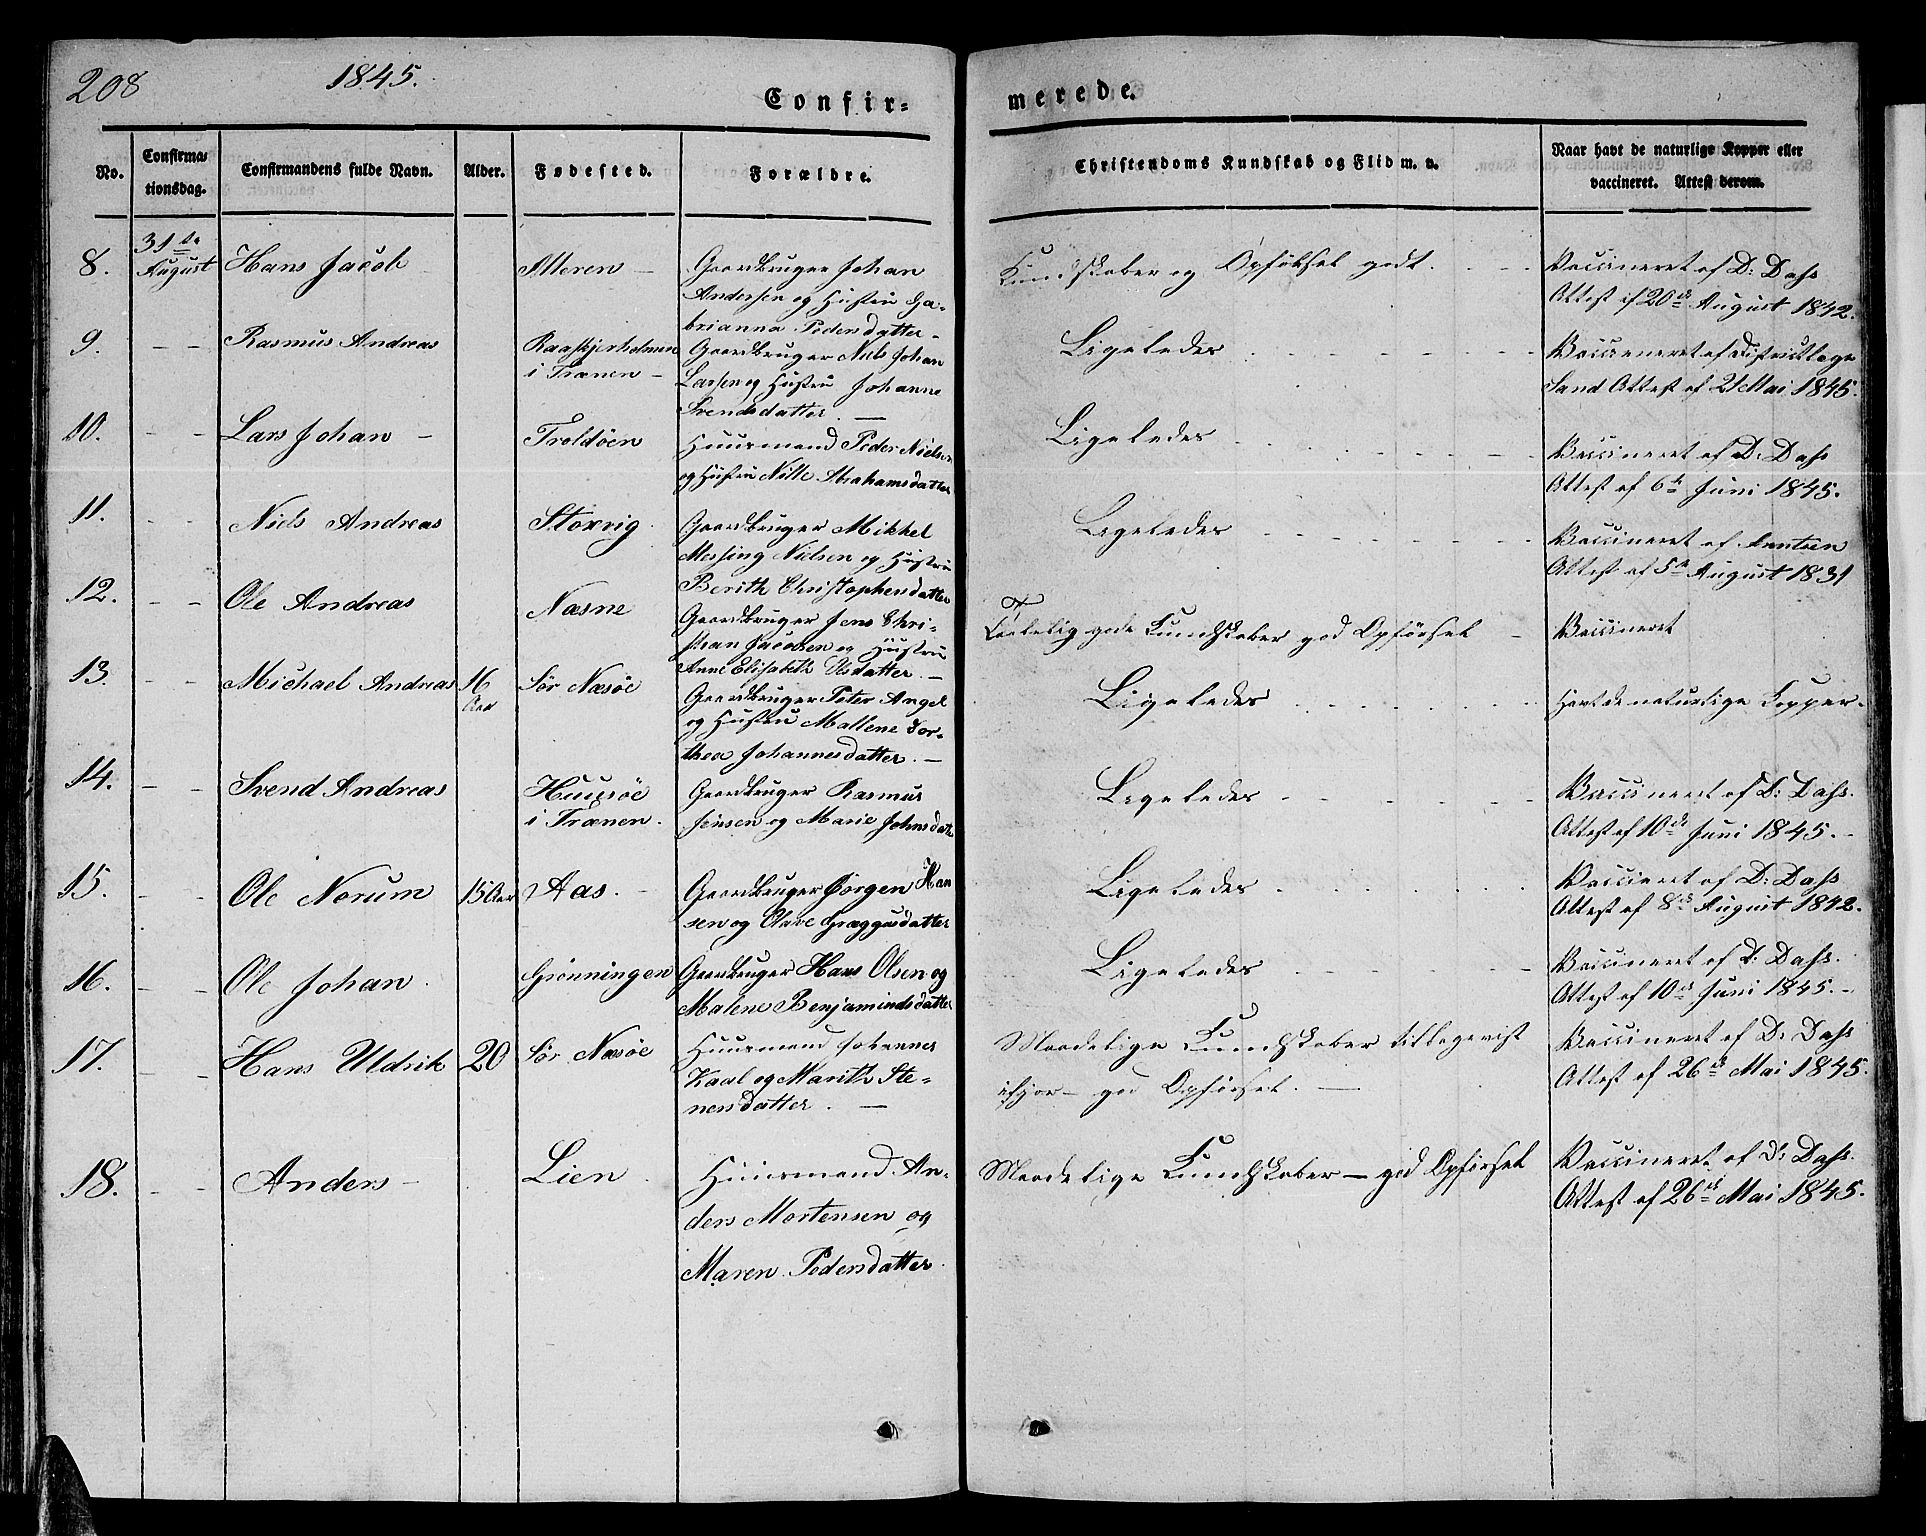 208
1845.
Confir-
merede.
No.
Confirma-
tionsdag.
Confirmandens fulde Navn.
Alder.
Fødested.
Forældre.
Christendoms Kundskab og Flid m. v.
Naar havt de naturlige Kopper eller
vaccineret. Attest derom.
8.
31te
August
Hans Jacob
Alteren -
Gaardbruger Johan
Andersen og Hustru Ga-
brianna Pedersdatter -
Kundskaber og Opførsel godt.
Vaccineret af D: Dahs
Attest af 20de August 1842.
9.
Rasmus Andreas
i Trænen -
Gaardbruger Niels Johan
Larsen og Hustru Johanne
Svendsdatter. -
Ligeledes
Vaccineret af Districtlæge
Sand Attest af 21 Mai 1845.
10.
Lars Johan -
Troldøen
Huusmand Peder Nielsen
og Hustru Nille Abrahamsdatter
Ligeledes
Vaccineret af D: Dahs
Attest af 6te Juni 1845.
11.
Niels Andreas
Stoxvig
Gaardbruger Mikkel
Messing Nielsen og Hustru
Berith Christophersdatter
Ligeledes
Vaccineret af
Attest af 5te August 1831
12.
Ole Andreas
Næsne
Gaardbruger Jens Chri-
stian Jacobsen og Hustru
Anne Elisabeth Olsdatter. -
Taalelig gode Kundskaber god Opførsel -
Vaccineret
13.
Michael Andreas
16
Aar
Sør Næsøe
Gaardbruger Peter Angel
og Hustru Mallene Dor-
thea Johannesdatter. -
Ligeledes
Havt de naturlige Kopper.
14.
Svend Andreas
Huusøe
i Trænen.
Gaardbruger Rasmus
Jensen og Marie Johnsdatr
Ligeledes
Vaccineret af D: Dahs.
Attest af 10de Juni 1845. -
15.
Ole Norum
15 Aar
Aas. -
Gaardbruger Jørgen Han
sen og Olave Græggusdatter
Ligeledes
Vaccineret af D: Dahs
Attest af 8de August 1842.
16.
Ole Johan.
Grønningen
Gaardbruger Hans Olsen og
Malene Benjamindsdatter
Ligeledes
Vaccineret af D: Dahs.
Attest af 10de Juni 1845. -
17.
Hans Uldrik
20
Sør Næsøe
Huusmand Johannes
Kaal og Marith Ste-
nersdatter. -
Maadelige Kundskaber tilbageviist
ifjor - god Opførsel. -
Vaccineret af D: Dahs
Attest af 26de Mai 1845.
18.
Anders -
Lien.
Huusmand An-
ders Mortensen og
Maren Pedersdatter.
Maadelige Kundskaber - god Opførsel
Vaccineret af D: Dahs.
Attest af 26de Mai 1845.